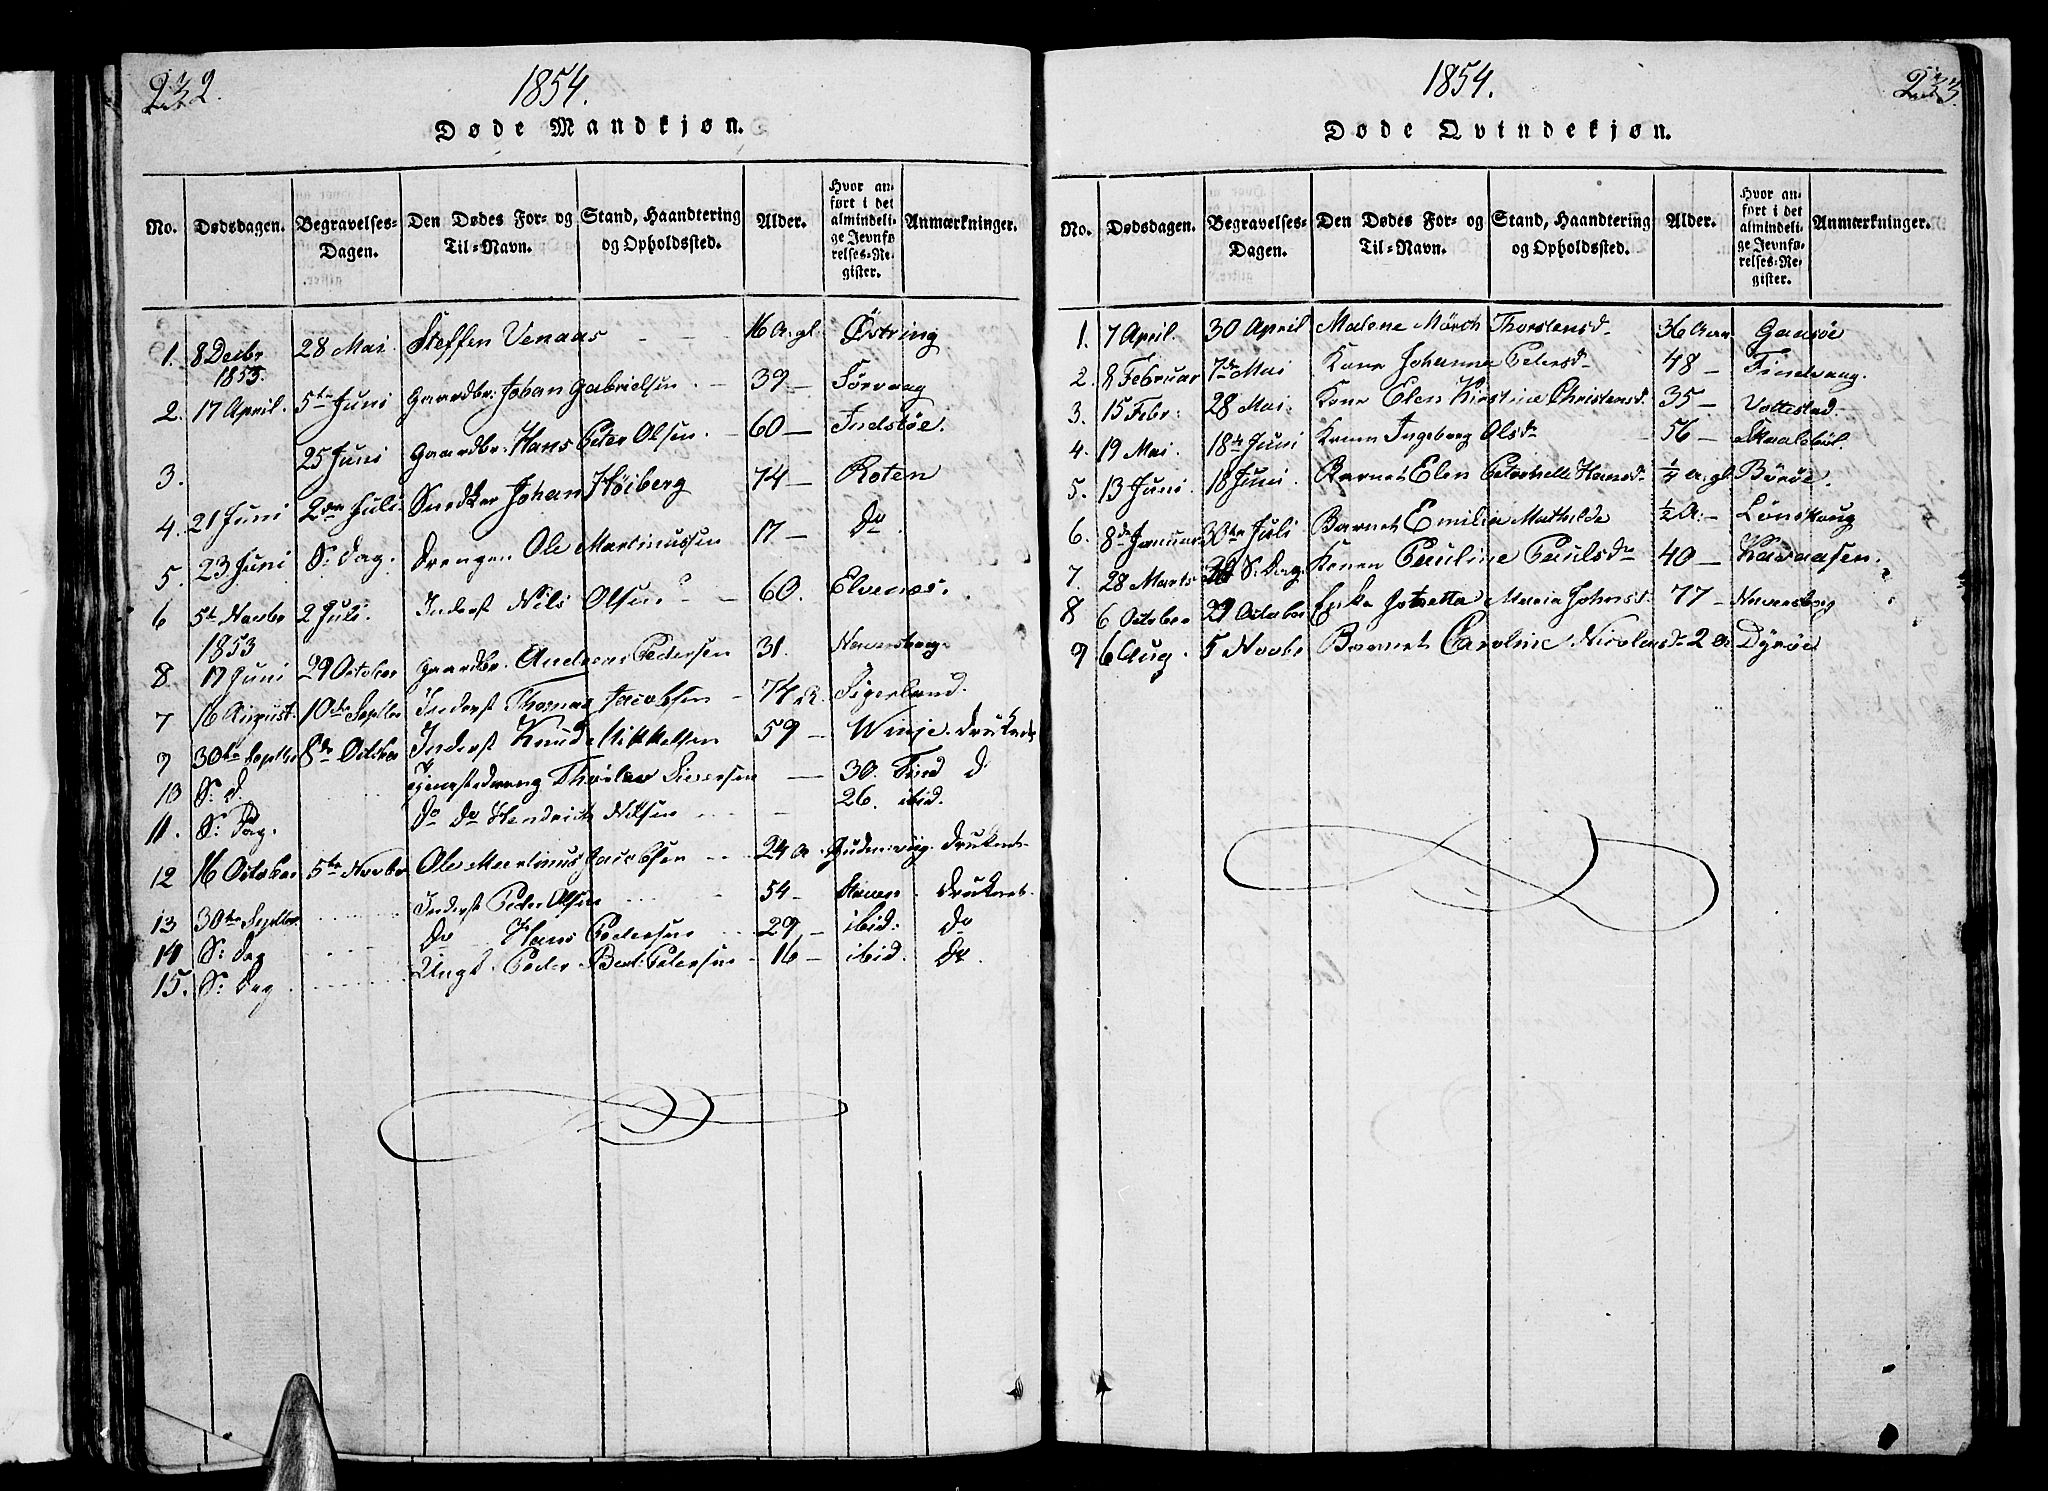 232.
1854.
Døde Mandkjøn.
No. Dødsdagen. Begravelses-Dagen. Den Dødes For- og Til-Navn. Stand, Haandtering og Opholdssted. Alder. Hvor anført i det almindelige Jevnførelses-Register. Anmærkninger.
1. 8 Decbr 1853. 28 Mai. Steffen Venaas 16 a. gl. Østring
2. 17 April. 5te Juni Gaardbr. Johan Gabrielsen 39 — Sørvaag
3. 25 Juni Gaardbr. Hans Peder Olsen. 60 — Indstøe.
4. 21 Juni 2den Juli Snedker Johan Höiberg 74 — Roten
5. 23 Juni S: Dag. Drengen Ole Martinussen 17 — Do.
6 5te Novbr 1853 2 Juli. Inderst Nils Olsen 60. Elvenæs.
8. 17 Juni 29 October Gaardbr. Andreas Pedersen 31. Haversberg
7 16 August. 10de Septbr Inderst Thomas Jacobsen 74 Sigerland.
9 30te Septbr 8de October Inderst Knud Mikkelsen 59 — Winje. druknet
10 S: D. Tjenestedreng Sivertsen — 30. Find D
11. S: Dag. Do Do Hendrich Nilsen 26. ibid.
12 16 October 5te Novbr Ole Martinus Jacobsen 24 a. druknet
13 30te Septbr. Inderst Peder Olsen 54 — druknet.
14 S: Dag Do Hans Pedersen 29 — ibid: Do
15. S: Dag Ungk. Peder Petersen 16 — ibid. Do.
1854.
233.
Døde Qvindekjøn.
No. Dødsdagen. Begravelses-Dagen. Den Dødes For- og Til-Navn. Stand, Haandtering og Opholdssted. Alder. Hvor anført i det almindelige Jevnførelses-Register. Anmærkninger.
1. 7 April. 30 April Malene Mörch Thorstensd. 36 Aar Gaasøe
2. 8 Februar 7de Mai Kone Johanna Petersd. 48 — Findvaag.
3. 15 Febr: 28 Mai. Kone Elen Kirstine Christensd. 35 — Vottestad.
4. 19 Mai. 18de Juni Konen Ingeborg Olsdr 56 — Skaalsbøl.
5. 13 Juni. 18 Juni. Barnet Elen Petrikelle Hansd. ¼ a. gl. Börøe.
6. 8de Januar 30te Juli Barnet Emilia Mathilde ½ a. — Lønskoug
7. 28 Marts 30 S: Dag. Konen Pauline Paulsdr 40 —
8 6 October 29 October Enke Maria Johnsd. 77 — Haversberg
9 6 Aug. 5 Novbr Barnet Caroline Nicolaisd. 2 a Dyrøe